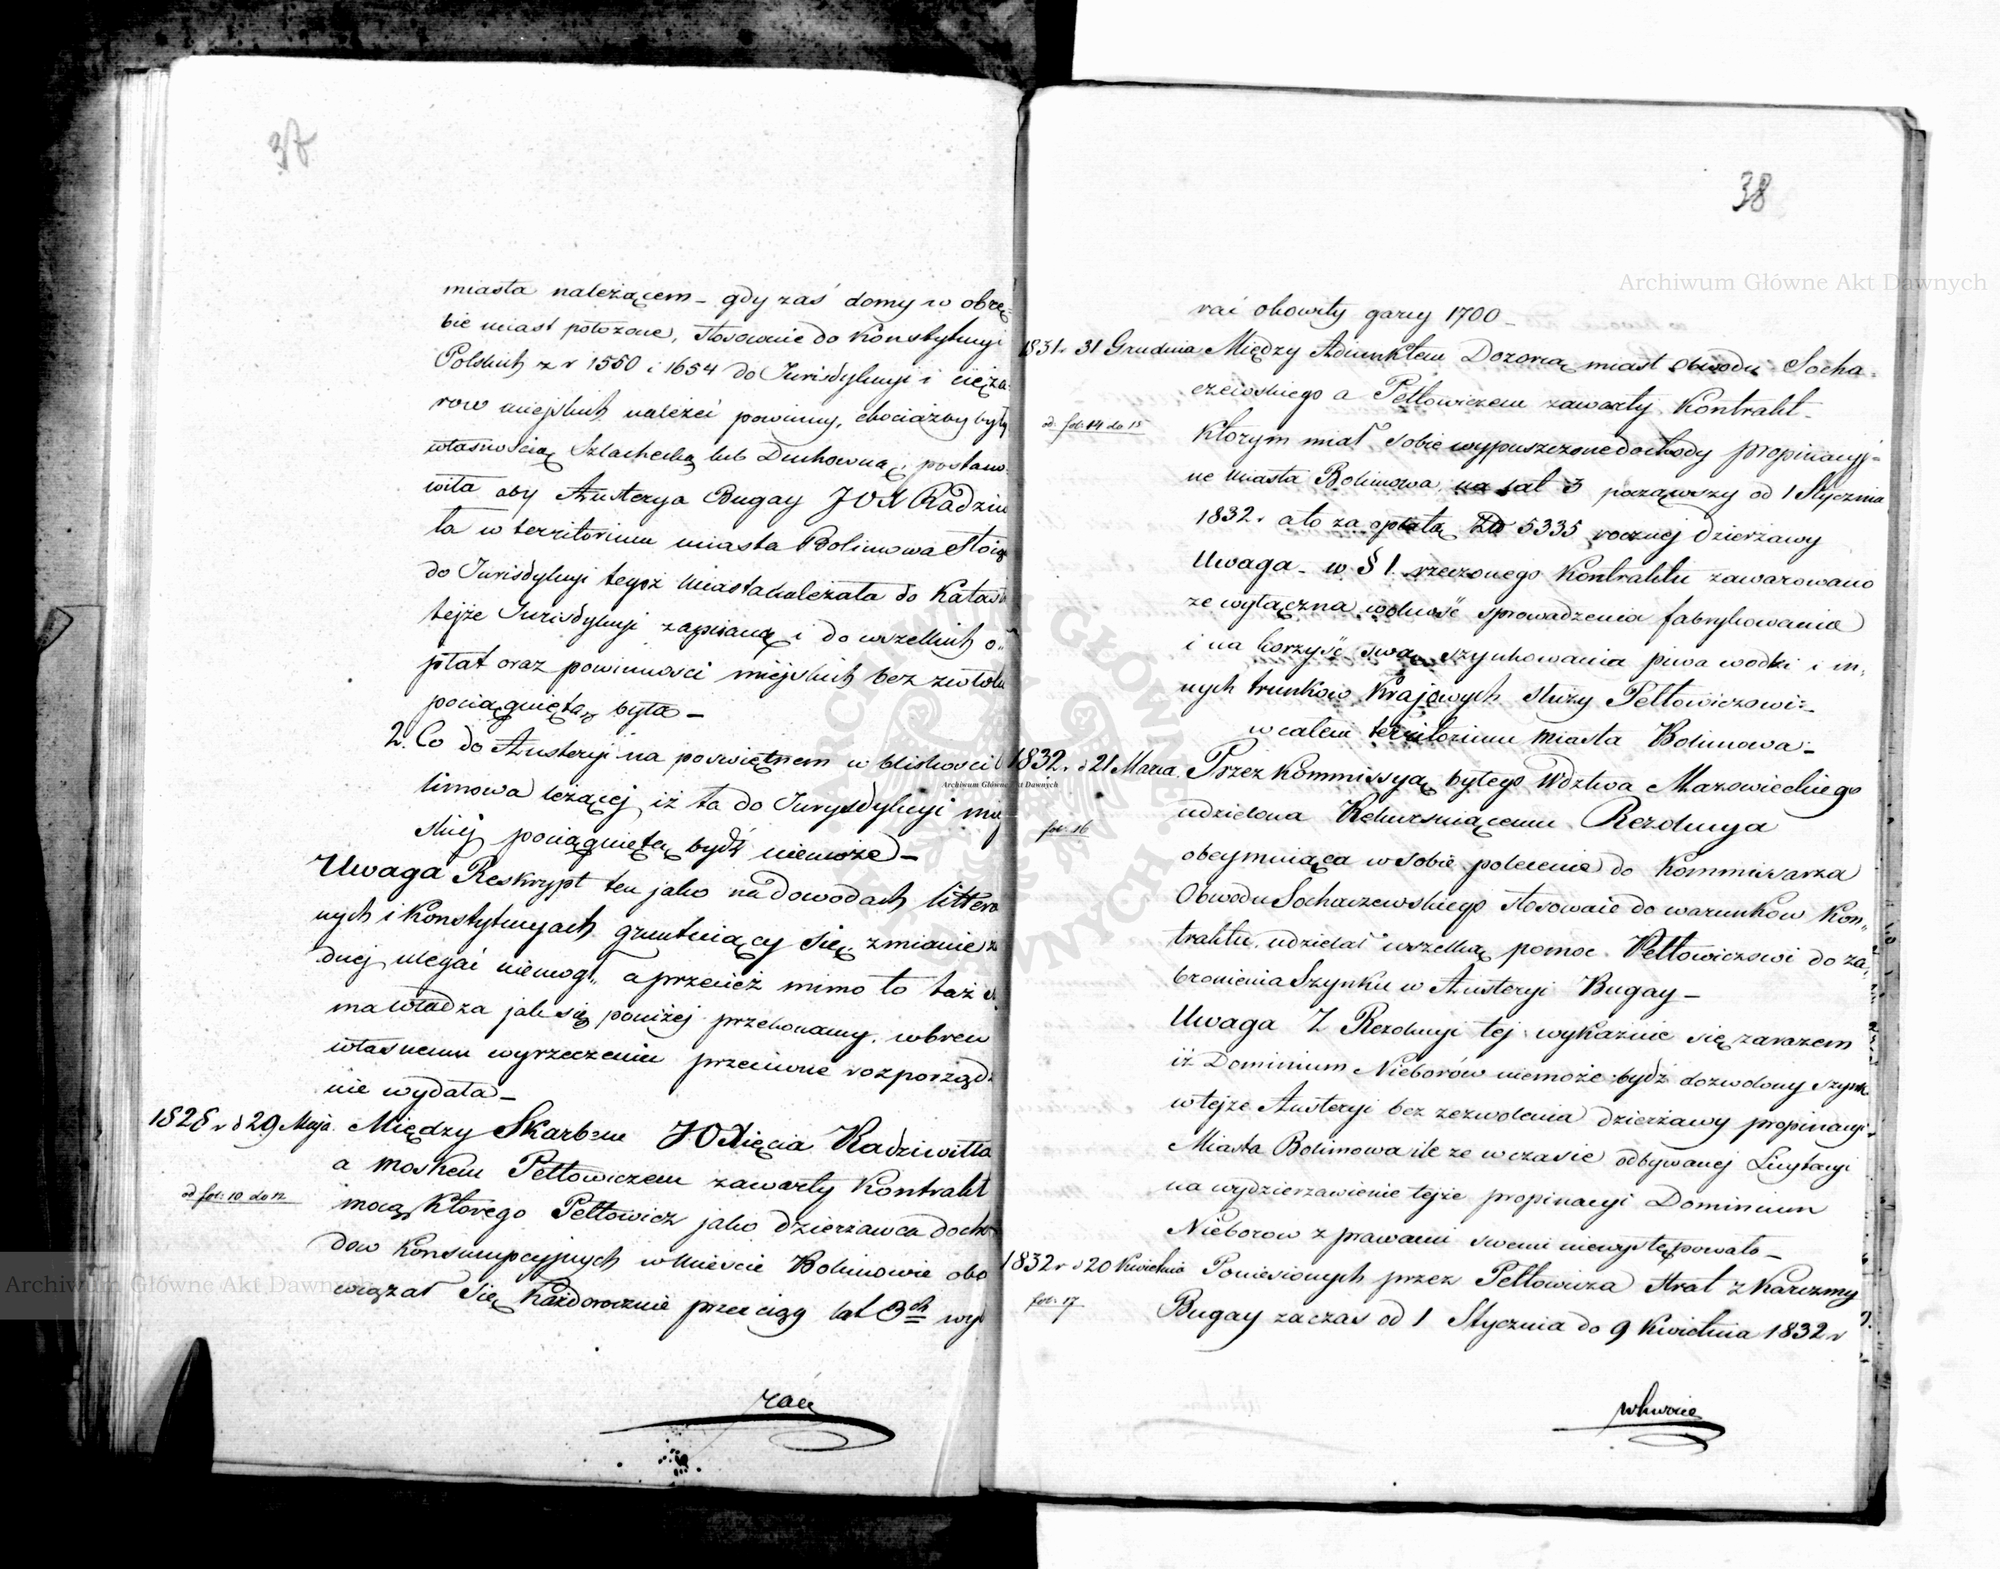 37
miasta należącem – gdy zaś domy w obrę=
bie miast położone, stosownie do Konstytucyi
Polskich z r 1550 i 1654 do Jurisdykcyi i cięża=
row miejskich należeć powinny, chociażby były
własnością Szlachecką lub Duchowną, postano=
wiła aby Austerya Bugay JOX Radziwi
łła w territorium miasta Bolimowa stoiąca
do Jurisdykcyi tegoż miasta należała do Katas
tejże Jurisdykcyi zapisaną i do wszelkich o=
płat oraz powinności miejskich bez zwłoki
pociągniętą była –
2. Co do Austeryi na poświętnem w bliskości
limowa leżącej, iż ta do Jurysdykcyi miej
skiej pociągniętą bydź niemoże –
Uwaga Reskrypt ten jako na dowodach littera
nych i Konstytucyach gruntuiący się, zmianie ża
dnej ulegać niemógł, a przecież mimo to taż sa
ma władza jak się poniżej przekonamy, wbrew
własnemu wyrzeczeniu przeciwne rozporządze
nie wydała –
1828 r d 29 Maja Między Skarbem JOXięcia Radziwiłła
a Moskem Pełtowiczem zawarty Kontrakt
od fol: 10 do 12
mocą którego Pełtowicz jako dzierżawca docho
dow Konsumpcyjnych w mieście Bolimowie obo
wiązał się każdorocznie przeciąg lat 3ch wy
rać
38
rać okowity garcy 1700 –
1831 r 31 Grudnia Między Adiunktem Dozorcą miast Obwodu Socha=
czewskiego a Pełtowiczem zawarty Kontrakt
od fol: 14 do 15
Ktorym miał sobie wypuszczone dochody propinacyj=
ne miasta Bolimowa na lat 3 począwszy od 1 Stycznia
1832 r a to za opłatą Zł 5335 rocznej dzierżawy
Uwaga – w § 1. rzeczonego Kontraktu zawarowano
że wyłączna wolność sprowadzenia fabrykowania
i na korzyść swą szynkowania piwa wodki i in=
nych trunkow Krajowych służy Pełtowiczowi =
w całem territorium miasta Bolimowa –
1832 r d 21 Marca Przez Kommissyą byłego Wdztwa Mazowieckiego
udzielona Rekursuiącemu Rezolucya
fol: 16
obeymuiąca w sobie polecenie do Kommissarza
Obwodu Sochaczewskiego stosowaie do warunkow Kon=
traktu, udzielał wszelką pomoc Pełtowiczowi do za=
bronienia Szynku w Austeryi Bugay –
Uwaga Z Rezolucyi tej wykaźuie się zarazem
iż Dominium Nieborów niemoże bydź dozwolony szynk
w tejże Austeryi bez zezwolenia dzierżawy propinacyi
Miasta Bolimowa ile że w czasie odbywanej Licytacyi
na wydzierżawienie tejże propinacyi Dominium
Nieborow z prawami swemi niewystępowało –
1832 r d 20 Kwietnia Poniesionych przez Pełtowicza Strat z Karczmy
fol: 17
Bugay za czas od 1 Stycznia do 9 Kwietnia 1832 r
w kwocie
Archiwum Główne Akt Dawnych
Archiwum Główne Akt Dawnych
Archiwum Główne Akt Dawnych
ARCHIWUM GŁÓWNE AKT DAWNYCH